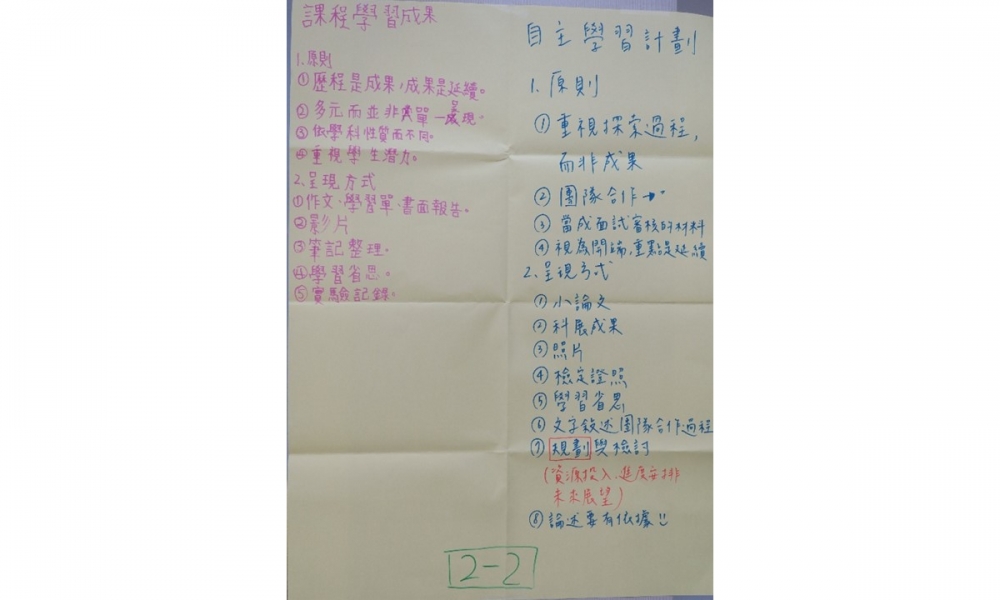 課程學習成果
1.原則
①歷程是成果,成果是延續。
②多元而並非單一呈現。
③依學科性質而不同。
④重視學生潛力。
2.呈現方式
①作文、學習單、書面報告。
②影片
③筆記整理。
④學習省思。
⑤實驗記錄。
自主學習計劃
1.原則
①重視探索過程,
而非成果
②團隊合作
③當成面試審核的材料
④視為開端,重點是延續
2.呈現方式
①小論文
②科展成果
③照片
④檢定證照
⑤學習省思
⑥文字敘述團隊合作過程
⑦規劃與檢討
(資源投入、進度安排
未來展望)
⑧論述要有依據!!
2-2